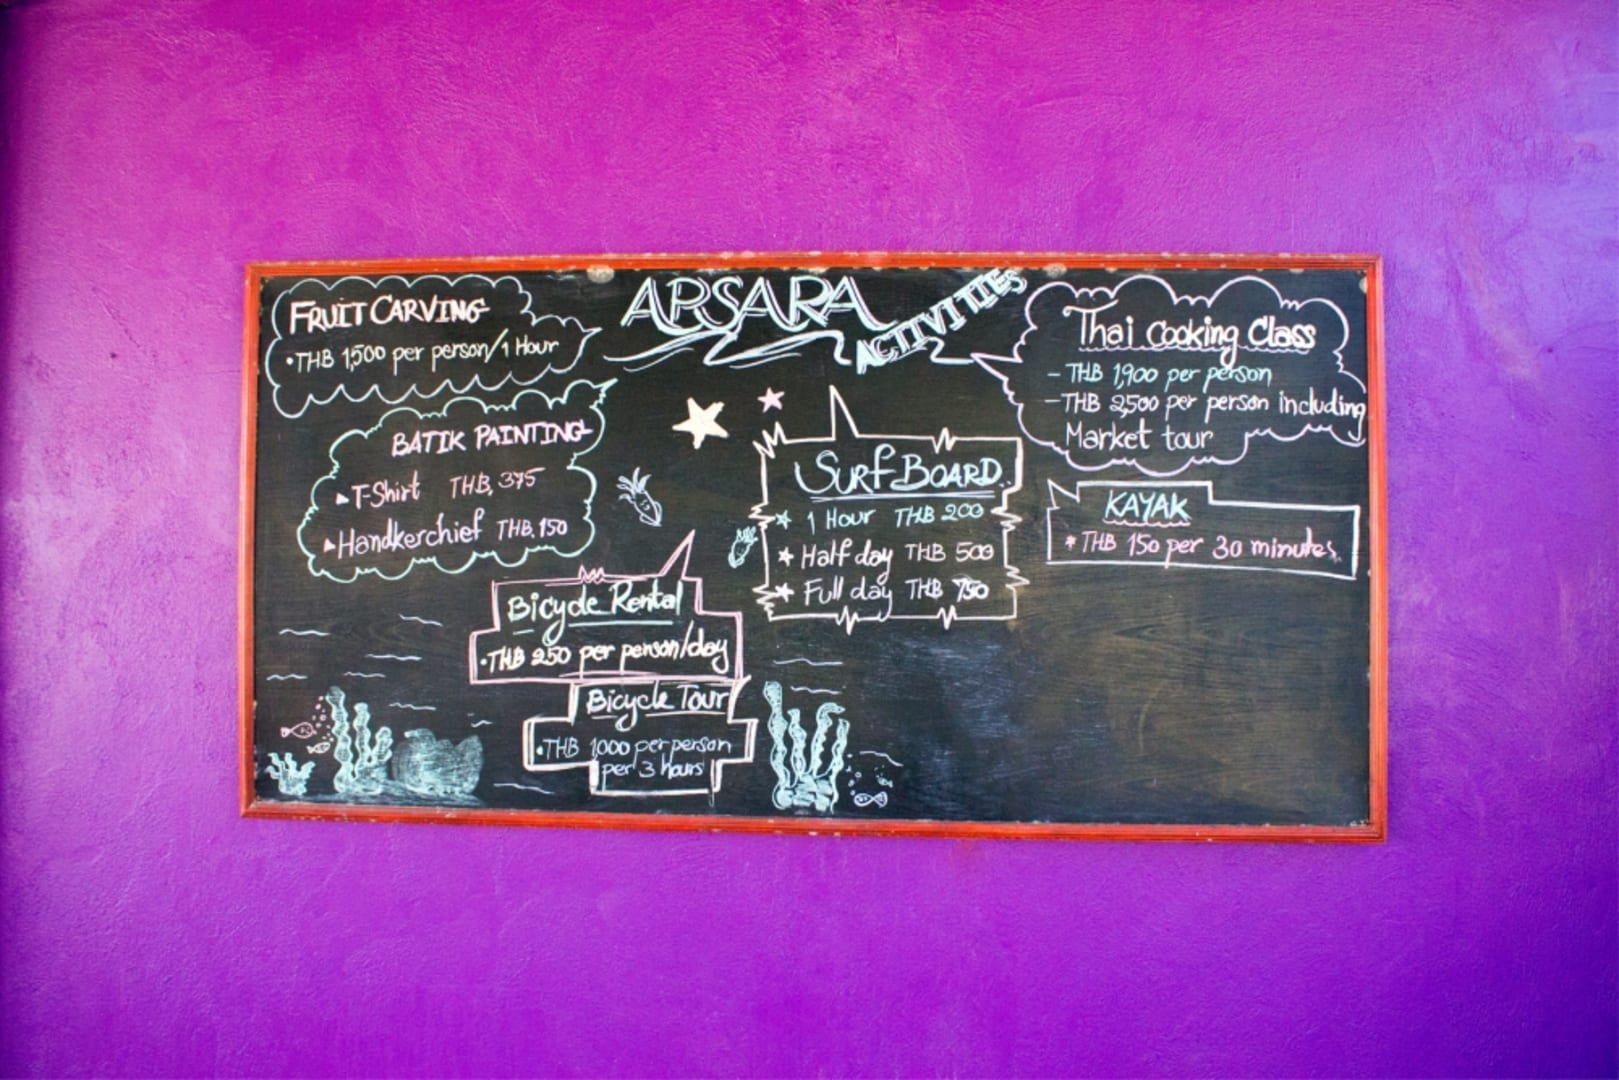 APSARA
ACTIVITIES
FRUIT CARVING
• THB 1,500 per person/1 Hour
BATIK PAINTING
T-Shirt THB, 375
Handkerchief THB. 150
Bicycle Rental
• THB 250 per person/day
Bicycle Tour
• THB 1,000 per person
per 3 hours
SURFBOARD
1 Hour THB 200
Half day THB 500
Full day THB 750
Thai Cooking Class
- THB 1,900 per person
- THB 2,500 per person including
Market tour
KAYAK
* THB 150 per 30 minutes.